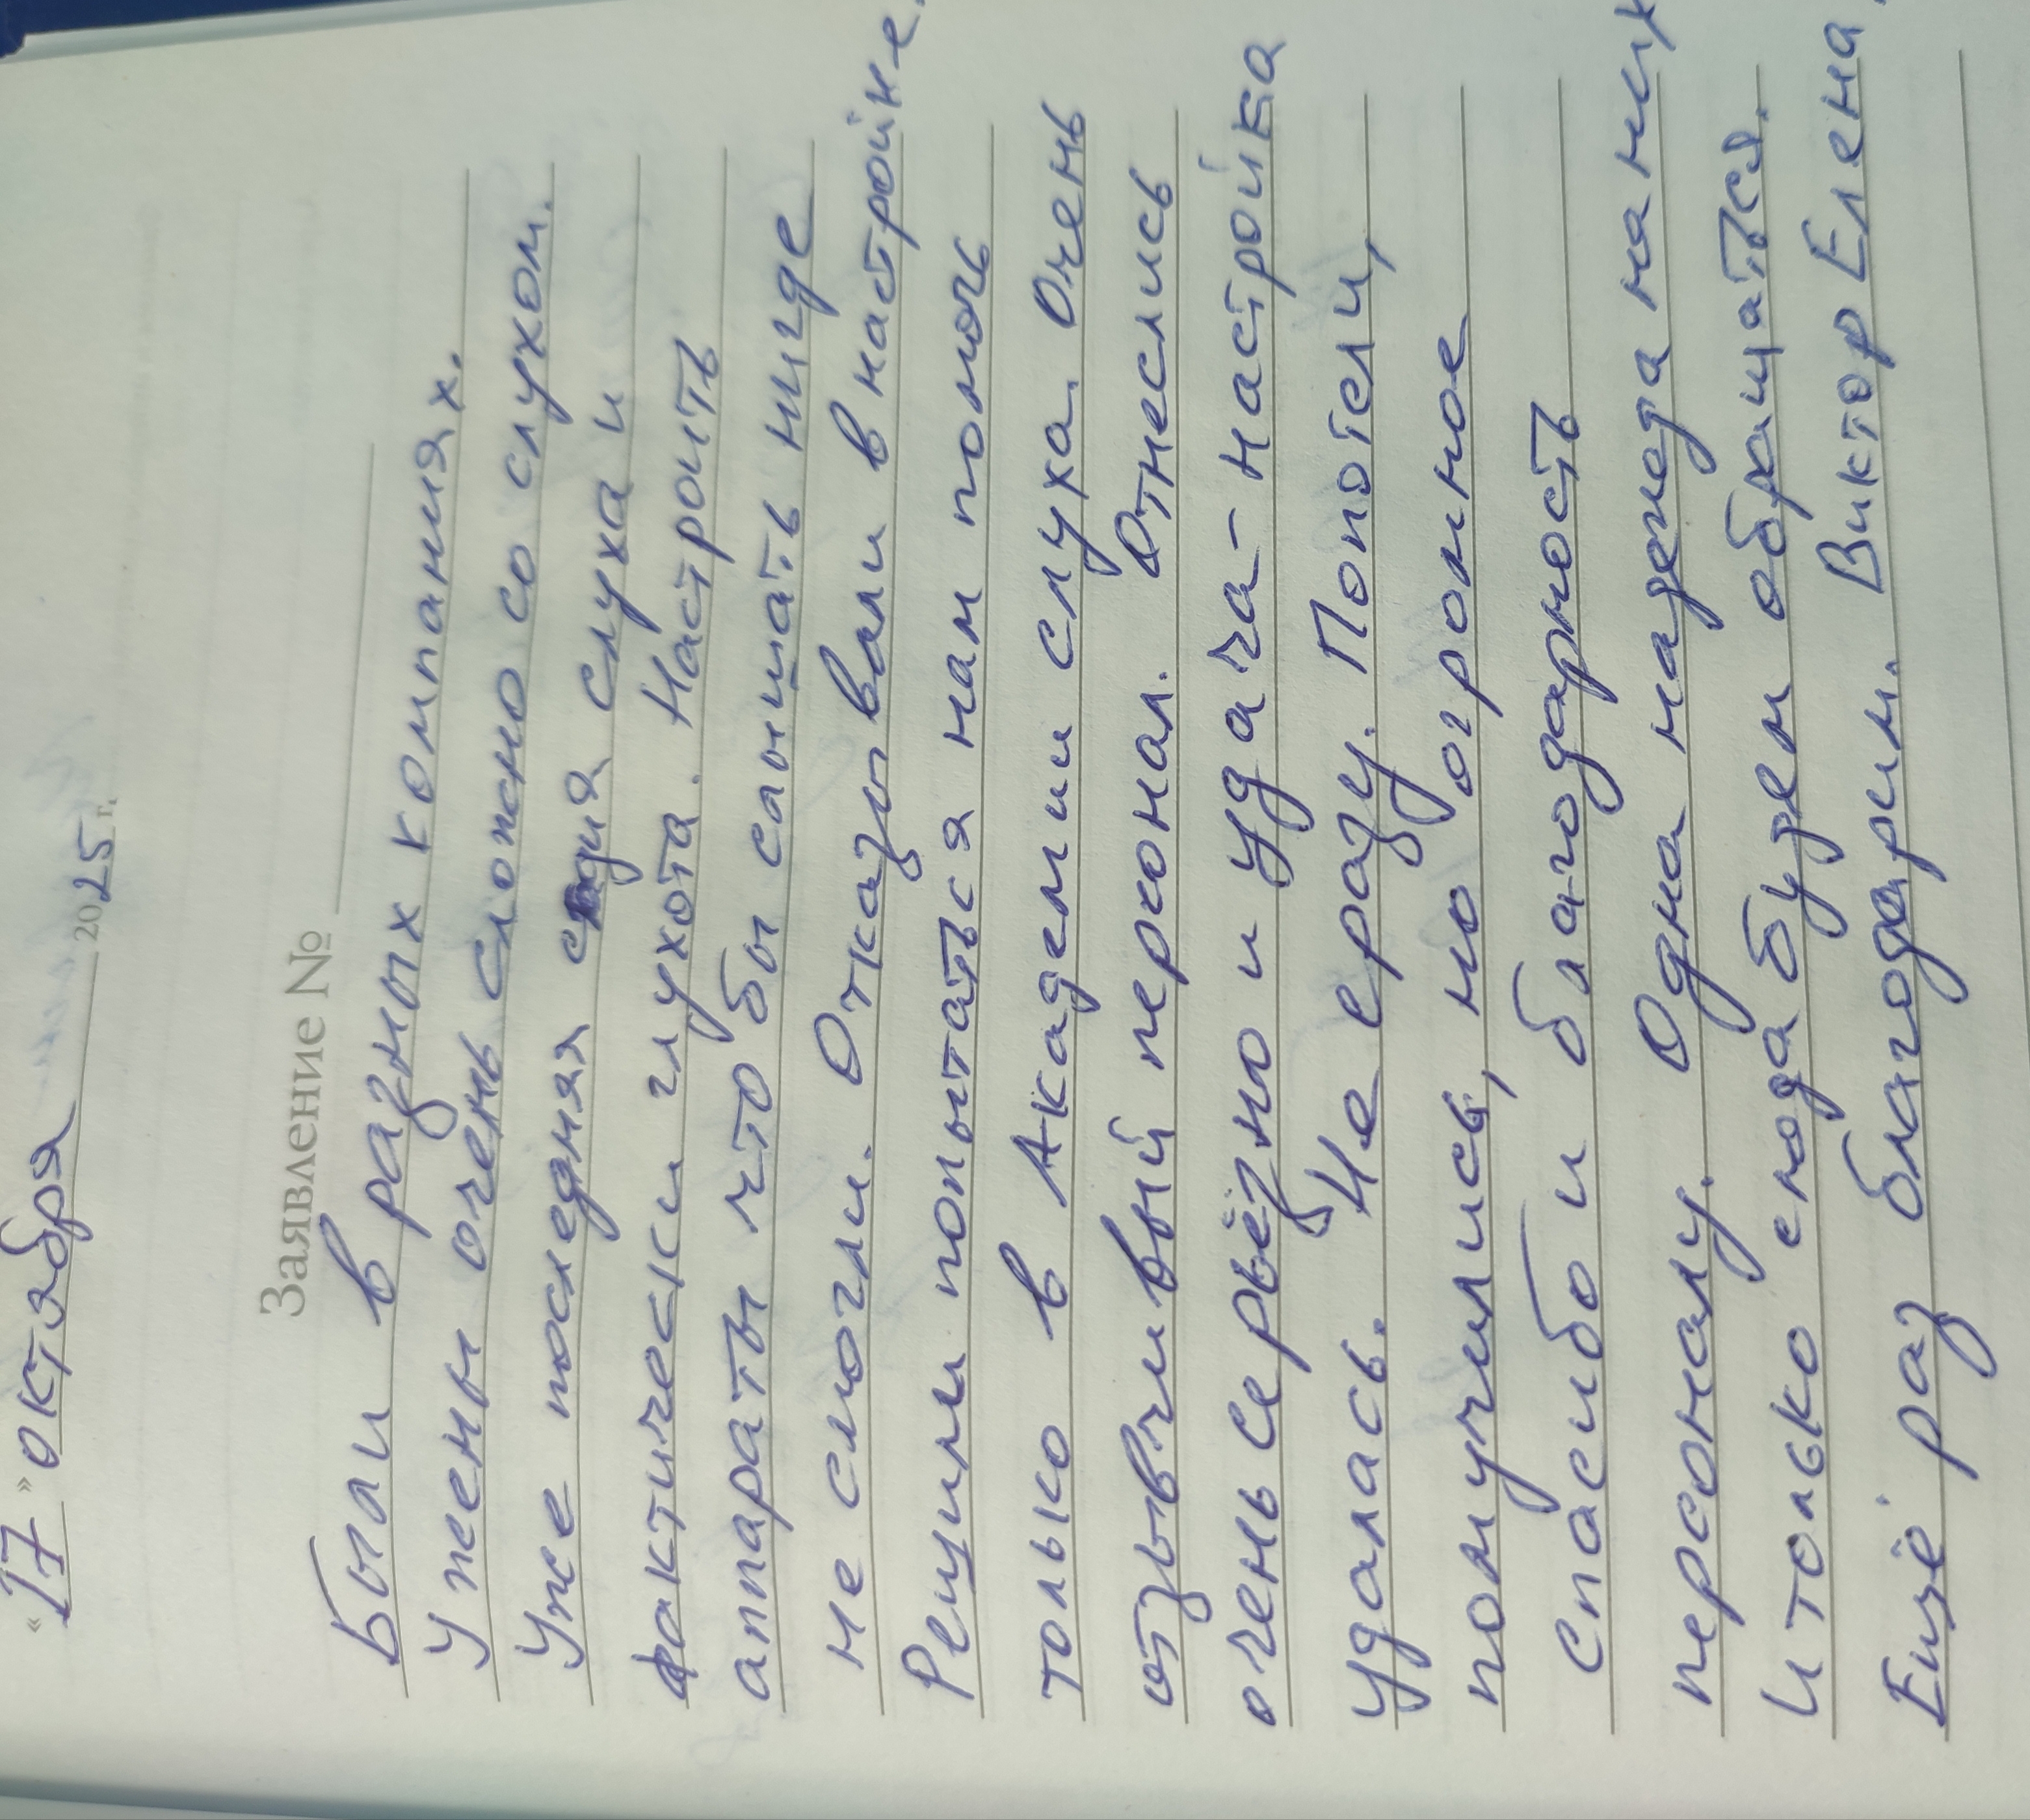 "17" октября 2025 г.
Заявление №
Были в разных компаниях.
У жены очень сложно со слухом.
Уже последняя стадия слуха и
фактически глухота. Настроить
аппараты что бы слышать нигде
не смогли. Отказывали в настройке.
Решили попытаться нам помочь
только в Академии слуха. Очень
отзывчивый перхонал. Отнеслись
очень серьёзно и удача-настройка
удалась. Не сразу. Попотели,
помучились, но огромное
спасибо и благодарность
персоналу. Одна надежда на них
И только сюда будем обращаться.
Ещё раз благодарим. Виктор Елена.